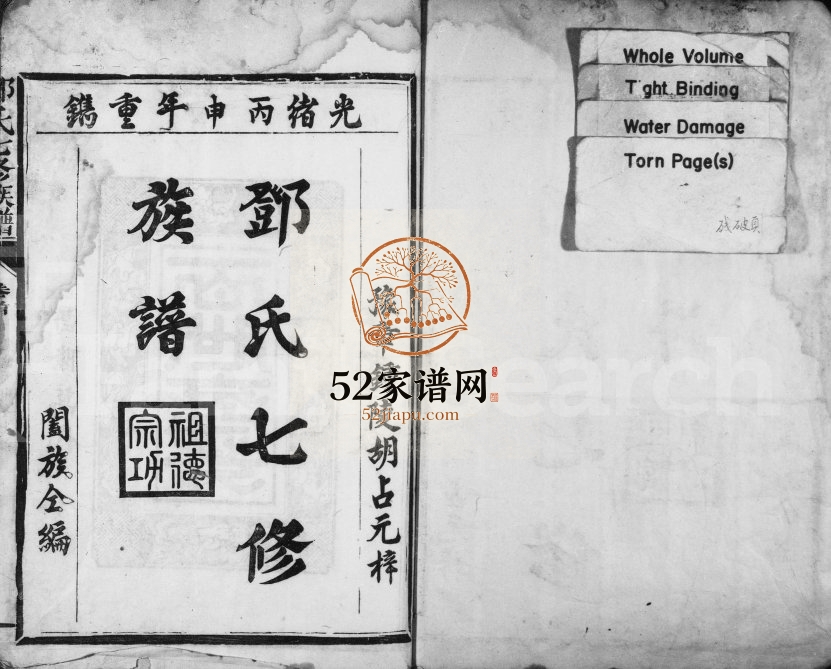 光緒丙申年重鐫
豫章鍾陵胡占元梓
鄧氏七修
族譜
祖德
宗功
闔族仝編
鄧氏七修族譜
Whole Volume
T ght Binding
Water Damage
Torn Page(s)
残破頁
52家谱网
52jiapu.com